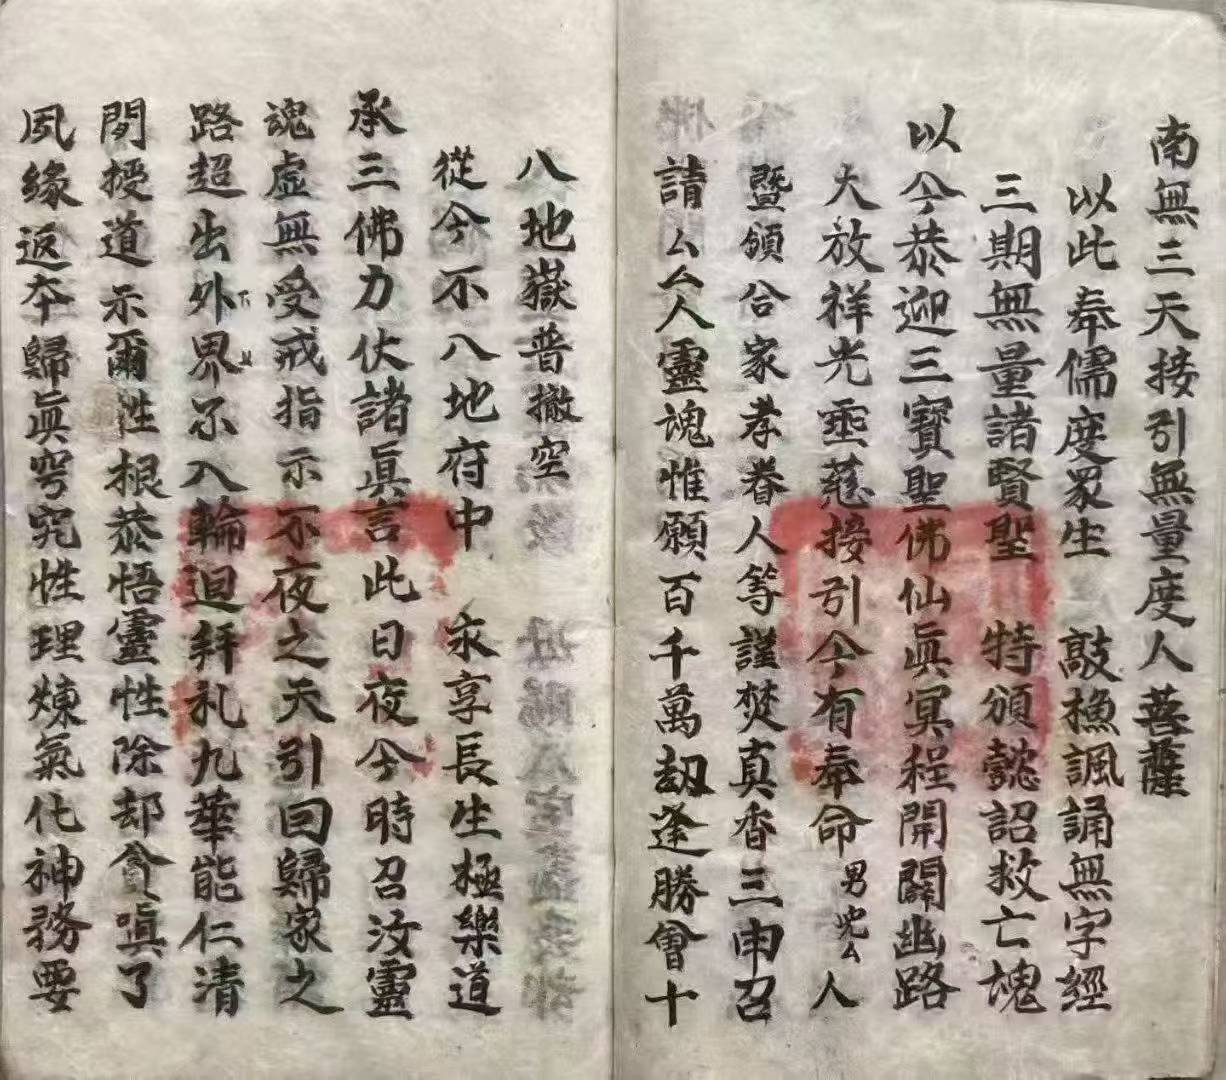 南無三天接引無量度人菩薩
以此奉儒度眾生 敲漁諷誦無字經
三期無量諸賢聖 特頒懿詔救亡魂
以今恭迎三寶聖佛仙眞冥程開闢幽路
大放祥光垂慈接引今有奉命男兜么人
暨領合家孝眷人等謹焚真香三申召
請厶厶人靈魂惟願百千萬劫逢勝會十
八地嶽普撤空
從今不入地府中 永享長生極樂道
承三佛力仗諸眞言此日夜今時召汝靈
魂虛無受戒指示不夜之天引回歸家之
路超出外界不入輪迴拜礼九華能仁清
閉授道示爾性根恭悟靈性除却貪嗔了
夙緣返本歸眞窮究性理煉氣化神務要